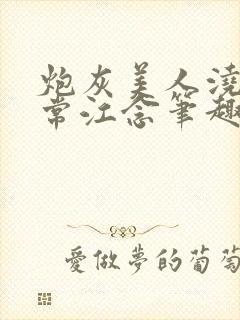 炮灰美人澆
常江念筆趣
愛做夢的葡萄